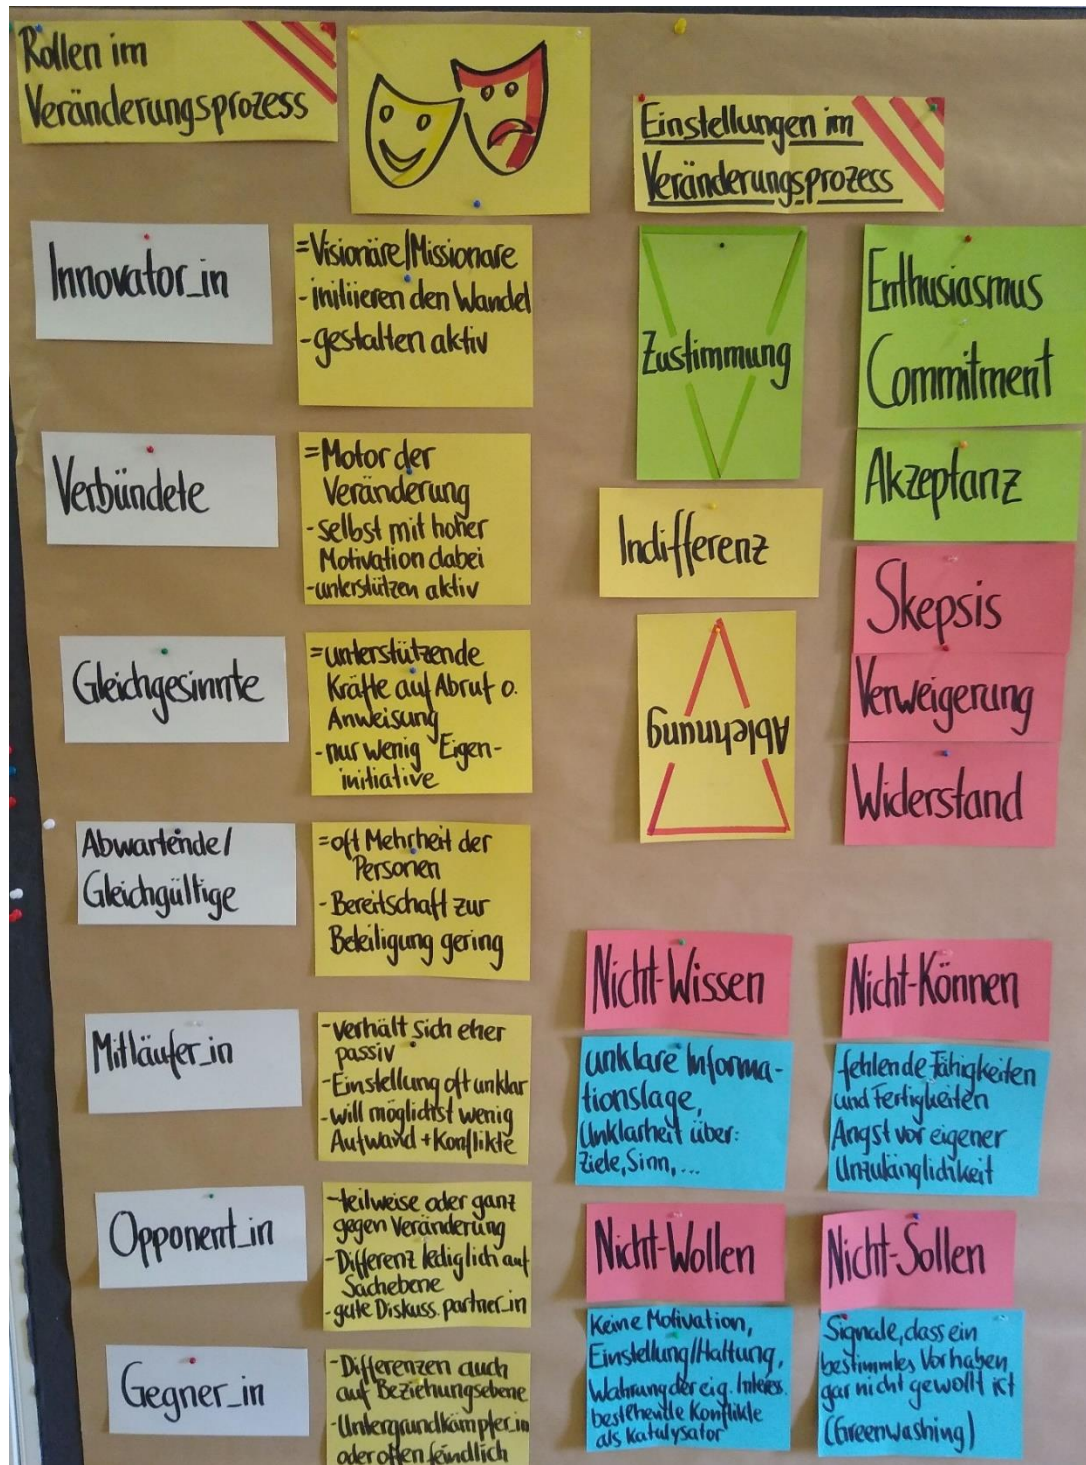 Rollen im
Veränderungsprozess
Innovator_in
=Visionäre/Missionare
-initiieren den Wandel
-gestalten aktiv
Verbündete
=Motor der
Veränderung
-selbst mit hoher
Motivation dabei
-unterstützen aktiv
Gleichgesinnte
=unterstützende
Kräfte auf Abruf o.
Anweisung
-nur wenig Eigen-
initiative
Abwartende/
Gleichgültige
=oft Mehrheit der
Personen
-Bereitschaft zur
Beteiligung gering
Mitläufer_in
-verhält sich eher
passiv
-Einstellung oft unklar
-will möglichst wenig
Aufwand+Konflikte
Opponent_in
-teilweise oder ganz
gegen Veränderung
-Differenz lediglich auf
Sachebene
-gute Diskuss.partner_in
Gegner_in
-Differenzen auch
auf Beziehungsebene
-Untergrundkämpfer_in
oder offen feindlich
Einstellungen im
Veränderungsprozess
Zustimmung
Indifferenz
Ablehnung
Enthusiasmus
Commitment
Akzeptanz
Skepsis
Verweigerung
Widerstand
Nicht-Wissen
unklare Informa-
tionslage,
Unklarheit über:
Ziele, Sinn, ...
Nicht-Können
fehlende Fähigkeiten
und Fertigkeiten
Angst vor eigener
Unzulänglichkeit
Nicht-Wollen
Keine Motivation,
Einstellung/Haltung,
Wahrung der eig. Interes.
bestehende Konflikte
als Katalysator
Nicht-Sollen
Signale, dass ein
bestimmtes Vorhaben
gar nicht gewollt ist
(Greenwashing)